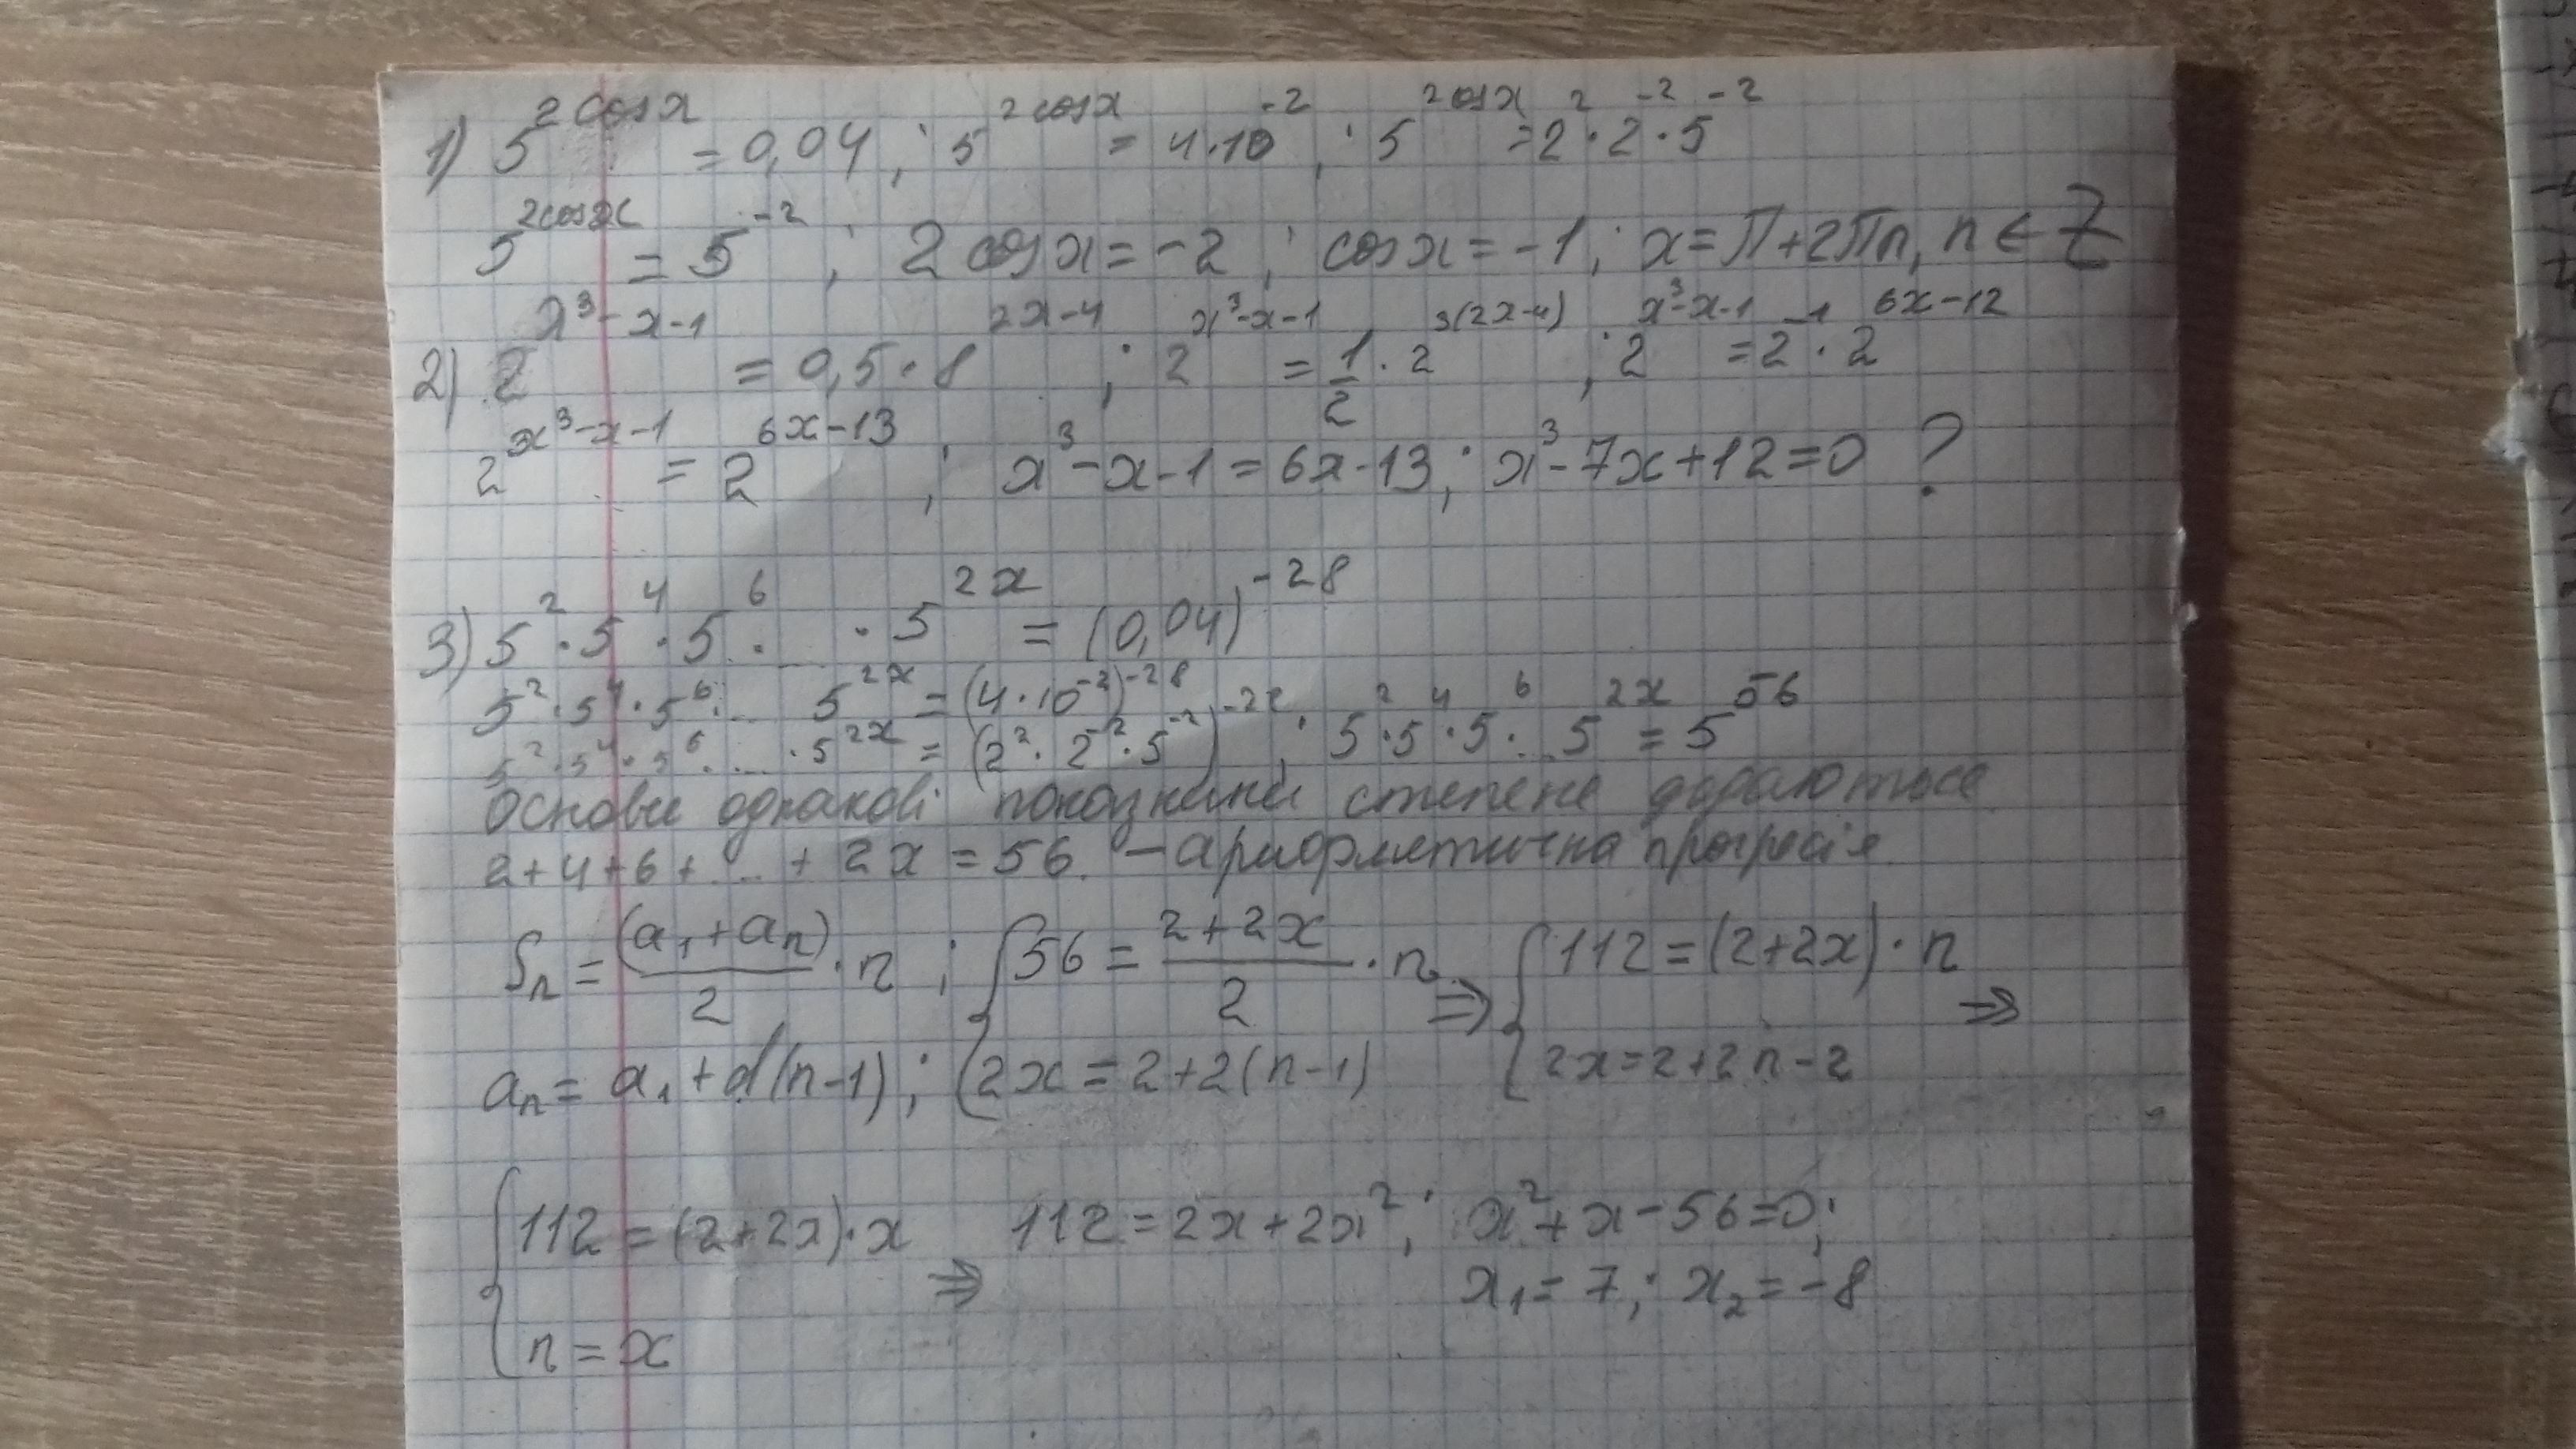 1) 5^{2cosx} = 0,04 ; 5^{2cosx} = 4·10^{-2} ; 5^{2cosx} = 2^2·2^{-2}·5^{-2}
5^{2cosx} = 5^{-2} ; 2cosx = -2 ; cosx = -1 ; x = π+2πn, n ∈ Z
2) 2^{x^3-x-1} = 0,5·8^{2x-4} ; 2^{x^3-x-1} = 1/2 · 2^{3(2x-4)} ; 2^{x^3-x-1} = 2^{-1}·2^{6x-12}
2^{x^3-x-1} = 2^{6x-13} ; x^3-x-1 = 6x-13 ; x^3-7x+12=0 ?
3) 5^2·5^4·5^6· ... ·5^{2x} = (0,04)^{-28}
5^2·5^4·5^6· ... 5^{2x} = (4·10^{-2})^{-28}
5^2·5^4·5^6· ... ·5^{2x} = (2^2·2^{-2}·5^{-2})^{-28} ; 5^2·5^4·5^6· ... 5^{2x} = 5^{56}
Основи однакові показники степене додаються
2+4+6+ ... +2x = 56. – арифметична прогресія
S_n = (a_1+a_n)/2 · n ; { 56 = (2+2x)/2 · n ⇒ { 112 = (2+2x)·n ⇒
a_n = a_1+d(n-1) ; { 2x = 2+2(n-1) { 2x = 2+2n-2
{ 112 = (2+2x)·x ⇒ 112 = 2x+2x^2 ; x^2+x-56=0 ;
{ n = x x_1 = 7 ; x_2 = -8